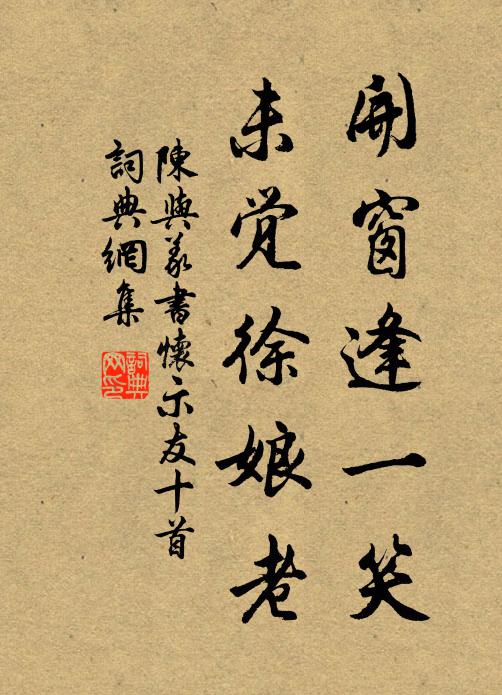 開窗逢一笑
未覺徐娘老
陳與義書懷示友十首
詞典網集
詞典網印